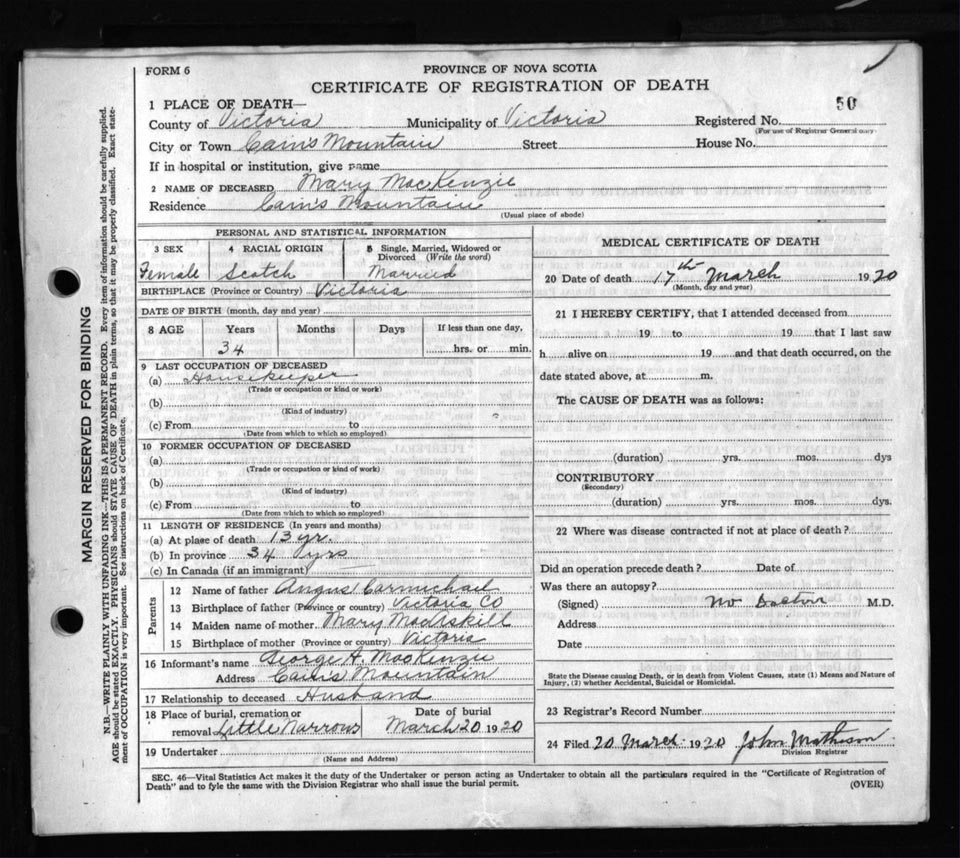 FORM 6
PROVINCE OF NOVA SCOTIA
CERTIFICATE OF REGISTRATION OF DEATH
50
1 PLACE OF DEATH—
County of Victoria Municipality of Victoria Registered No.
(For use of Registrar General only)
City or Town Cain's Mountain Street House No.
If in hospital or institution, give name
2 NAME OF DECEASED Mary MacKenzie
Residence Cain's Mountain
(Usual place of abode)
MARGIN RESERVED FOR BINDING
N.B.—WRITE PLAINLY WITH UNFADING INK—THIS IS A PERMANENT RECORD. Every item of information should be carefully supplied.
AGE should be stated EXACTLY. PHYSICIANS should STATE CAUSE OF DEATH in plain terms, so that it may be properly classified. Exact state-
ment of OCCUPATION is very important. See instructions on back of Certificate.
PERSONAL AND STATISTICAL INFORMATION
3 SEX 4 RACIAL ORIGIN 5 Single, Married, Widowed or
Divorced (Write the word)
Female Scotch Married
BIRTHPLACE (Province or Country) Victoria
DATE OF BIRTH (month, day and year)
8 AGE Years Months Days If less than one day,
34 hrs. or min.
9 LAST OCCUPATION OF DECEASED
(a) Housekeeper
(Trade or occupation or kind or work)
(b)
(Kind of industry)
(c) From to
(Date from which to which so employed)
10 FORMER OCCUPATION OF DECEASED
(a)
(Trade or occupation or kind of work)
(b)
(Kind of industry)
(c) From to
(Date from which to which so employed)
11 LENGTH OF RESIDENCE (In years and months)
(a) At place of death 13 yr.
(b) In province 34 yrs
(c) In Canada (if an immigrant)
Parents
12 Name of father Angus Carmichael
13 Birthplace of father (Province or country) Victoria Co
14 Maiden name of mother Mary
15 Birthplace of mother (Province or country) Victoria
16 Informant's name George A. MacKenzie
Address Cain's Mountain
17 Relationship to deceased Husband
18 Place of burial, cremation or Date of burial
removal Little Narrows March 20 1920
19 Undertaker
(Name and Address)
MEDICAL CERTIFICATE OF DEATH
20 Date of death 17th March 1920
(Month, day and year)
21 I HEREBY CERTIFY, that I attended deceased from
19 to 19 that I last saw
h alive on 19 and that death occurred, on the
date stated above, at m.
The CAUSE OF DEATH was as follows:
(duration) yrs. mos. dys
CONTRIBUTORY
(Secondary)
(duration) yrs. mos. dys.
22 Where was disease contracted if not at place of death?
Did an operation precede death? Date of
Was there an autopsy?
(Signed) No Doctor M.D.
Address
Date
State the Disease causing Death, or in death from Violent Causes, state (1) Means and Nature of
Injury, (2) whether Accidental, Suicidal or Homicidal.
23 Registrar's Record Number
24 Filed 20 March 1920 John Matheson
Division Registrar
SEC. 46—Vital Statistics Act makes it the duty of the Undertaker or person acting as Undertaker to obtain all the particulars required in the "Certificate of Registration of
Death" and to fyle the same with the Division Registrar who shall issue the burial permit. (OVER)